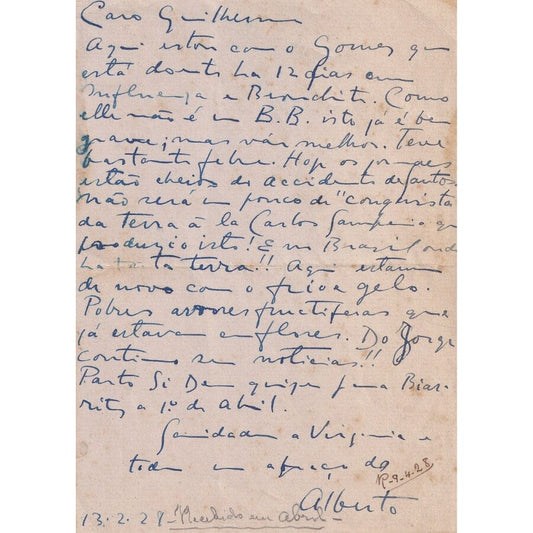 Caro Guilherme
Aqui estou com o Gomes que
está doente ha 12 dias com
Influença e Bronchite. Como
elle não é um B.B. isto já é bem
grave; mas vae melhor. Teve
bastante febre. Hoje os jornaes
estão cheios do accidente de Santos.
não será um pouco de "conquista
da terra á la Carlos Sampaio que
produzio isto! E no Brazil onde
ha tanta terra!! Aqui estamos
de novo com o frio a gelo.
Pobres arvores fructiferas que
já estavam em flores. Do Jorge
continuo sem noticias!!
Parto Si Deus quizer para Biar-
ritz a 1º de Abril.
Saudades a Virginia e
todos um abraço do
R-9-4-28
Alberto
13.2.28 - Recebido em Abril -